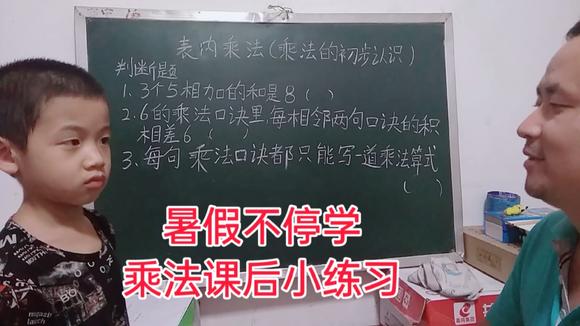 表内乘法(乘法的初步认识)
判断题
1、3个5相加的和是8( )
2、6的乘法口诀里,每相邻两句口诀的积
相差6( )
3、每句乘法口诀都只能写一道乘法算式
( )
暑假不停学
乘法课后小练习